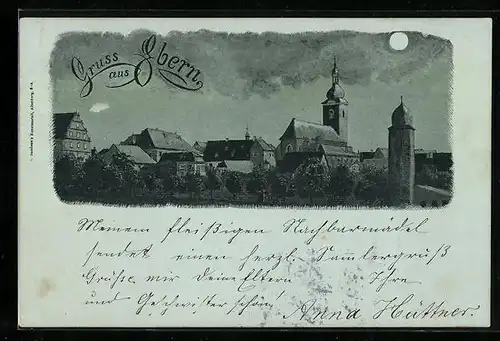 Gruss
aus
Ebern.
Meinem fleißigen Nachbarmädel
sendet einen herzl. Samlergruß
Grüße mir deine Eltern Ihre
und Geschwister schön! Anna Hüttner.